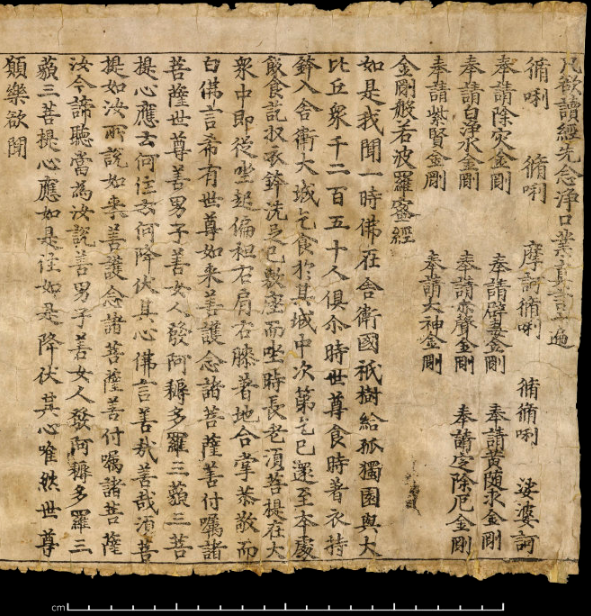 凡欲讀經先念淨口業真言一遍
脩唎 脩唎 摩訶脩唎 脩脩唎 娑婆訶
奉請除灾金剛 奉請辟毒金剛 奉請黃隨求金剛
奉請白淨水金剛 奉請赤聲金剛 奉請定除厄金剛
奉請紫賢金剛 奉請大神金剛
金剛般若波羅蜜經
如是我聞一時佛在舍衛國祇樹給孤獨園與大
比丘衆千二百五十人俱尒時世尊食時著衣持
鉢入舍衛大城乞食於其城中次第乞已還至本處
飯食訖收衣鉢洗足已敷座而坐時長老湏菩提在大
衆中即從坐起偏袒右肩右膝著地合掌恭敬而
白佛言希有世尊如來善護念諸菩薩善付囑諸
菩薩世尊善男子善女人發阿耨多羅三藐三菩
提心應云何住云何降伏其心佛言善哉善哉湏菩
提如汝所說如來善護念諸菩薩善付囑諸菩薩
汝今諦聽當為汝說善男子善女人發阿耨多羅三
藐三菩提心應如是住如是降伏其心唯然世尊
願樂欲聞
cm